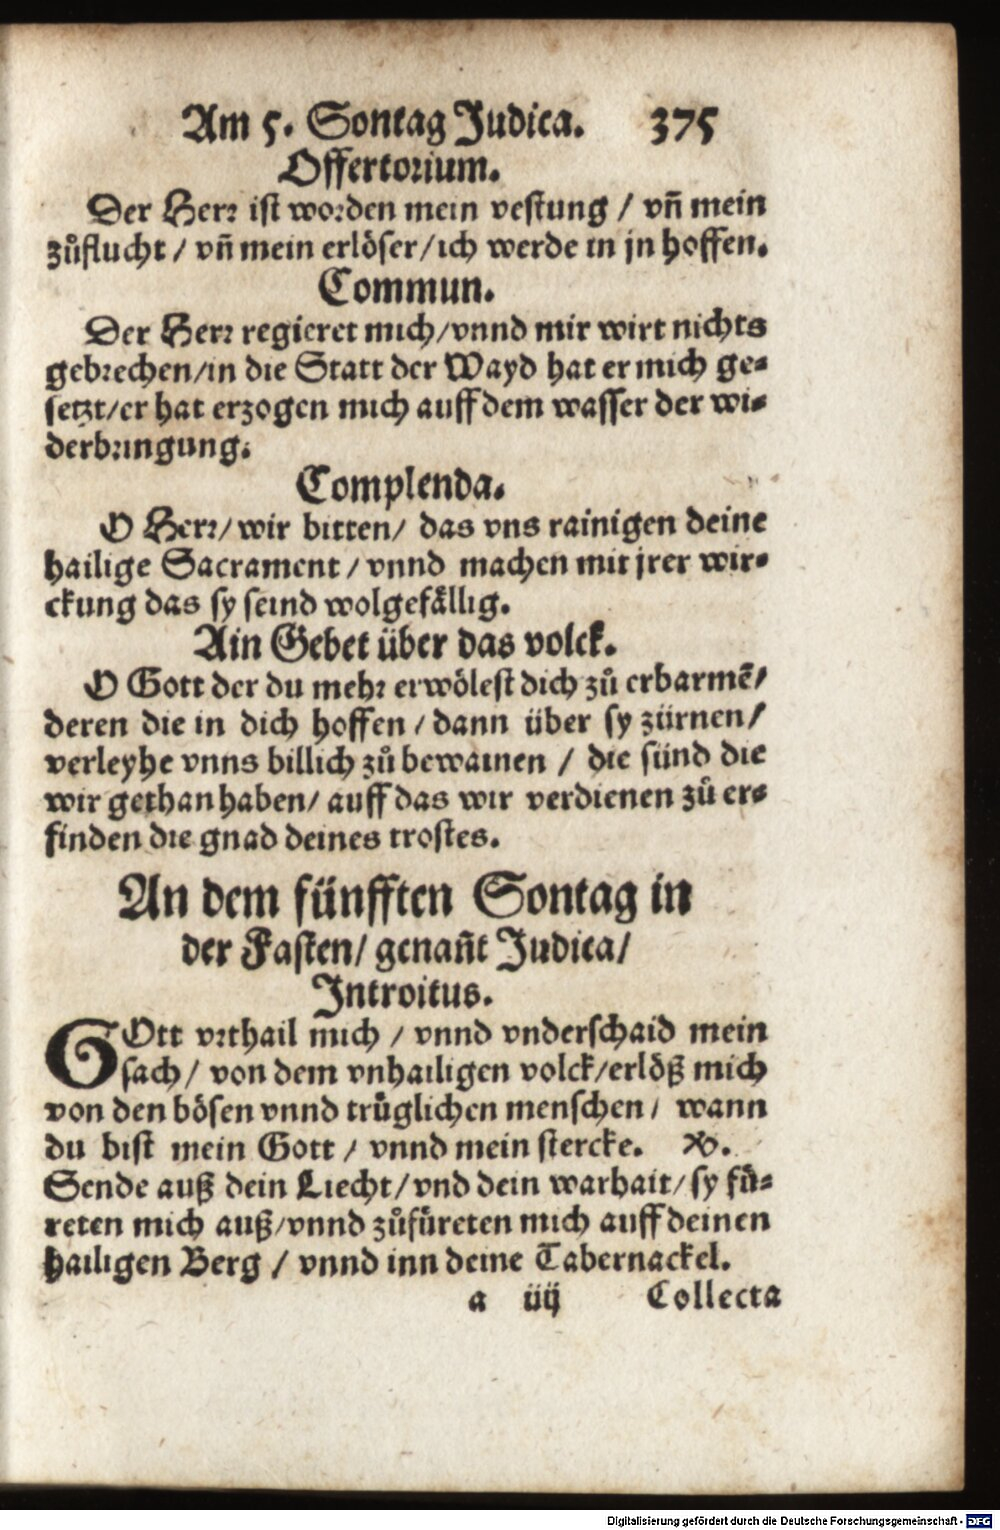 Am 5. Sontag Judica. 375
Offertorium.
Der Herr ist worden mein vestung / vñ mein
zůflucht / vñ mein erlöser / ich werde in jn hoffen.
Commun.
Der Herr regieret mich / vnnd mir wirt nichts
gebrechen / in die Statt der Wayd hat er mich ge-
setzt / er hat erzogen mich auff dem wasser der wi-
derbringung.
Complenda.
O Herr / wir bitten / das vns rainigen deine
hailige Sacrament / vnnd machen mit jrer wir-
ckung das sy seind wolgefällig.
Ain Gebet über das volck.
O Gott der du mehr erwölest dich zů erbarmē /
deren die in dich hoffen / dann über sy zürnen /
verleyhe vnns billich zů bewainen / die sünd die
wir gethan haben / auff das wir verdienen zů er-
finden die gnad deines trostes.
An dem fünfften Sontag in
der Fasten / genañt Judica /
Introitus.
GOtt vrthail mich / vnnd vnderschaid mein
sach / von dem vnhailigen volck / erlöß mich
von den bösen vnnd trüglichen menschen / wann
du bist mein Gott / vnnd mein stercke. ℣.
Sende auß dein Liecht / vnd dein warhait / sy fü-
reten mich auß / vnnd zůfüreten mich auff deinen
hailigen Berg / vnnd inn deine Tabernackel.
a iiij Collecta
Digitalisierung gefördert durch die Deutsche Forschungsgemeinschaft - DFG